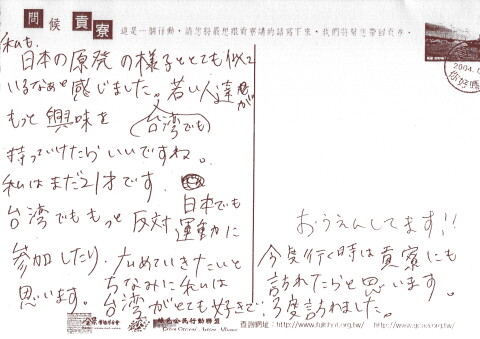 問候貢寮
這是一個行動，請您將最想跟貢寮講的話寫下來，我們將幫您帶回貢寮。
2004.
你好嗎
私も、
日本の原発の様子ととても似て
いるなぁと感じました。若い人達が
もっと興味を（台湾でも）
持っていけたらいいですね。
私はまだ21才です。日本でも
台湾でももっと反対運動に
参加したり、広めていきたいと
思います。ちなみに私は
台湾がとても好きで、3度訪れました。
おうえんしてます!!
今度行く時は貢寮にも
訪れたらと思います。
綠色公民行動聯盟
查詢網址：http://www.fulichat.org.tw/ http://www.gcaa.org.tw/